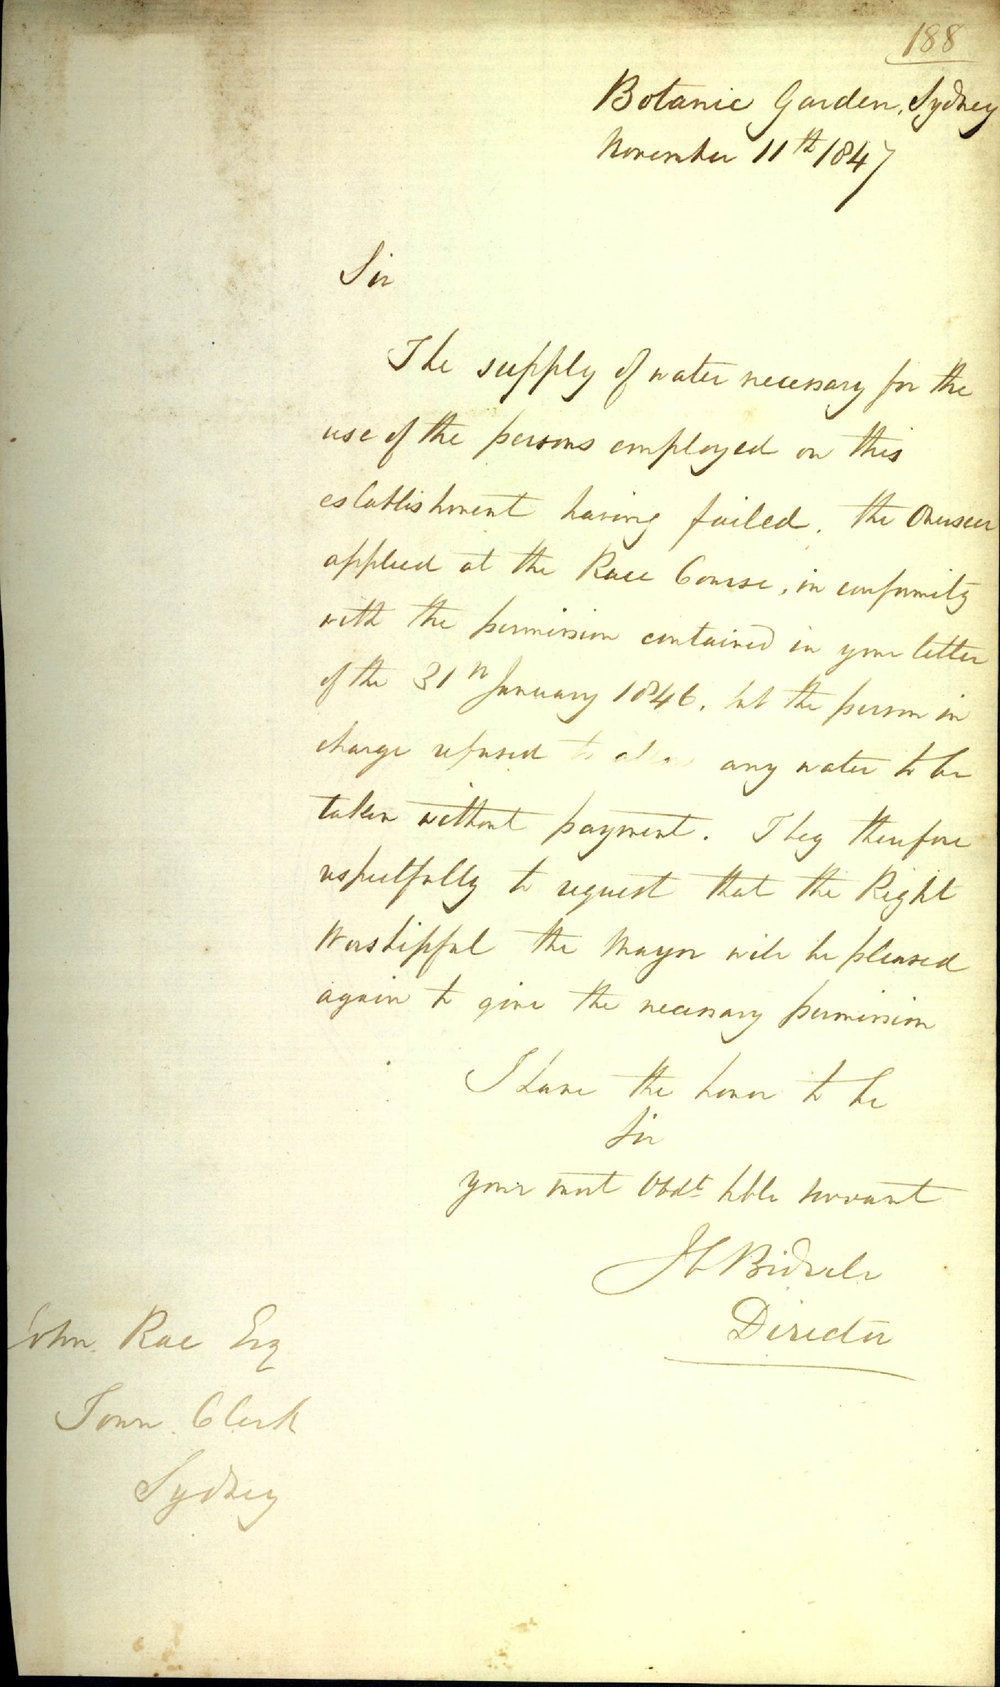 188
Botanic Garden, Sydney
November 11th 1847
Sir
The supply of water necessary for the
use of the persons employed on this
establishment having failed, the Overseer
applied at the Race Course, in conformity
with the permission contained in your letter
of the 31st January 1846, but the person in
charge refused to allow any water to be
taken without payment. I beg therefore
respectfully to request that the Right
Worshipful the Mayor will be pleased
again to give the necessary permission
I have the honor to be
Sir
your most Obdt hble servant
J C Bidwill
Director
John Rae Esq
Town Clerk
Sydney